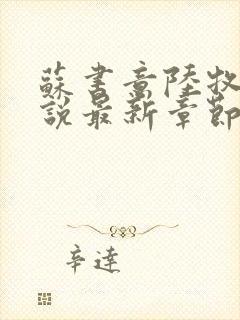 蘇書意陸牧
說最新章節
辛達